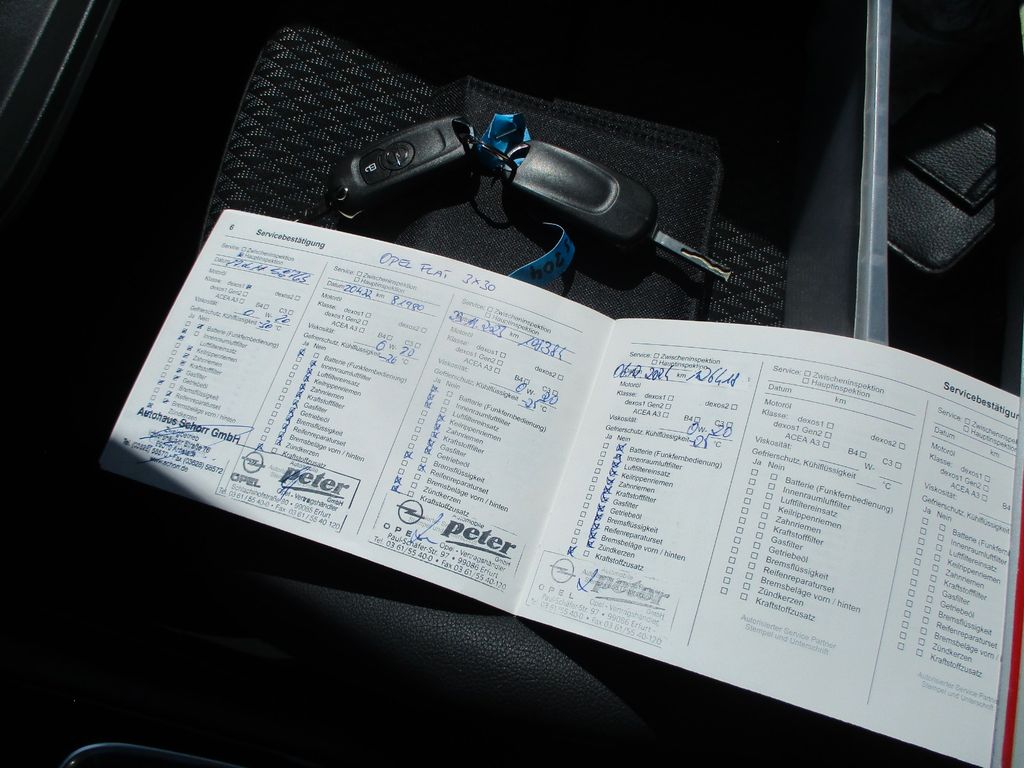 6 Servicebestätigung
OPEL FLAT 3x30
Service: Zwischeninspektion
Hauptinspektion
Datum
Motoröl
Klasse: dexos1
dexos1 Gen2 dexos2
ACEA A3 B4 C3
Viskosität:
Gefrierschutz, Kühlflüssigkeit
Ja Nein
Batterie (Funkfernbedienung)
Innenraumluftfilter
Luftfiltereinsatz
Keilrippenriemen
Zahnriemen
Kraftstofffilter
Gasfilter
Getriebeöl
Bremsflüssigkeit
Reifenreparaturset
Bremsbeläge vorn / hinten
Zündkerzen
Autohaus Schorr GmbH
Service: Zwischeninspektion
Hauptinspektion
Datum km
Motoröl
Klasse: dexos1 dexos2
dexos1 Gen2
ACEA A3 B4 C3
Viskosität: 0 W- 20
Gefrierschutz, Kühlflüssigkeit °C
Ja Nein
Batterie (Funkfernbedienung)
Innenraumluftfilter
Luftfiltereinsatz
Keilrippenriemen
Zahnriemen
Kraftstofffilter
Gasfilter
Getriebeöl
Bremsflüssigkeit
Reifenreparaturset
Bremsbeläge vorn / hinten
Zündkerzen
Kraftstoffzusatz
OPEL peter GmbH
99085 Erfurt
Tel. 03 61/55 40-0 • Fax 03 61/55 40-120
Service: Zwischeninspektion
Hauptinspektion
Motoröl
Klasse: dexos1 dexos2
dexos1 Gen2
ACEA A3 B4 C3
Viskosität: 0 W- 20
Gefrierschutz, Kühlflüssigkeit °C
Ja Nein
Batterie (Funkfernbedienung)
Innenraumluftfilter
Luftfiltereinsatz
Keilrippenriemen
Zahnriemen
Kraftstofffilter
Gasfilter
Getriebeöl
Bremsflüssigkeit
Reifenreparaturset
Bremsbeläge vorn / hinten
Zündkerzen
Kraftstoffzusatz
Automobile
OPEL peter GmbH
Opel - Vertragshändler
Paul-Schäfer-Str. 97 • 99085 Erfurt
Tel. 03 61/55 40-0 • Fax 03 61/55 40-120
Service: Zwischeninspektion
Hauptinspektion
2024 km
Motoröl
Klasse: dexos1 dexos2
dexos1 Gen2
ACEA A3 B4 C3
Viskosität: 0 W- 20
Gefrierschutz, Kühlflüssigkeit °C
Ja Nein
Batterie (Funkfernbedienung)
Innenraumluftfilter
Luftfiltereinsatz
Keilrippenriemen
Zahnriemen
Kraftstofffilter
Gasfilter
Getriebeöl
Bremsflüssigkeit
Reifenreparaturset
Bremsbeläge vorn / hinten
Zündkerzen
Kraftstoffzusatz
OPEL peter
Opel - Vertragshändler
Paul-Schäfer-Str. 97 • 99085 Erfurt
Tel. 03 61/55 40-0 • Fax 03 61/55 40-120
Service: Zwischeninspektion
Hauptinspektion
Datum km
Motoröl
Klasse: dexos1 dexos2
dexos1 Gen2
ACEA A3 B4 C3
Viskosität: W-
Gefrierschutz, Kühlflüssigkeit °C
Ja Nein
Batterie (Funkfernbedienung)
Innenraumluftfilter
Luftfiltereinsatz
Keilrippenriemen
Zahnriemen
Kraftstofffilter
Gasfilter
Getriebeöl
Bremsflüssigkeit
Reifenreparaturset
Bremsbeläge vorn / hinten
Zündkerzen
Kraftstoffzusatz
Autorisierter Service Partner
Stempel und Unterschrift
Servicebestätigun
Service: Zwischeninspektion
Hauptinspektion
Datum km
Motoröl
Klasse: dexos1
dexos1 Gen2
ACEA A3 B4
Viskosität:
Gefrierschutz, Kühlflüssigkeit
Ja Nein
Batterie (Funkfern
Innenraumluftfilter
Luftfiltereinsatz
Keilrippenriemen
Zahnriemen
Kraftstofffilter
Gasfilter
Getriebeöl
Bremsflüssigkeit
Reifenreparaturset
Bremsbeläge vorn /
Zündkerzen
Kraftstoffzusatz
Autorisierter Service Partne
Stempel und Unterschrift